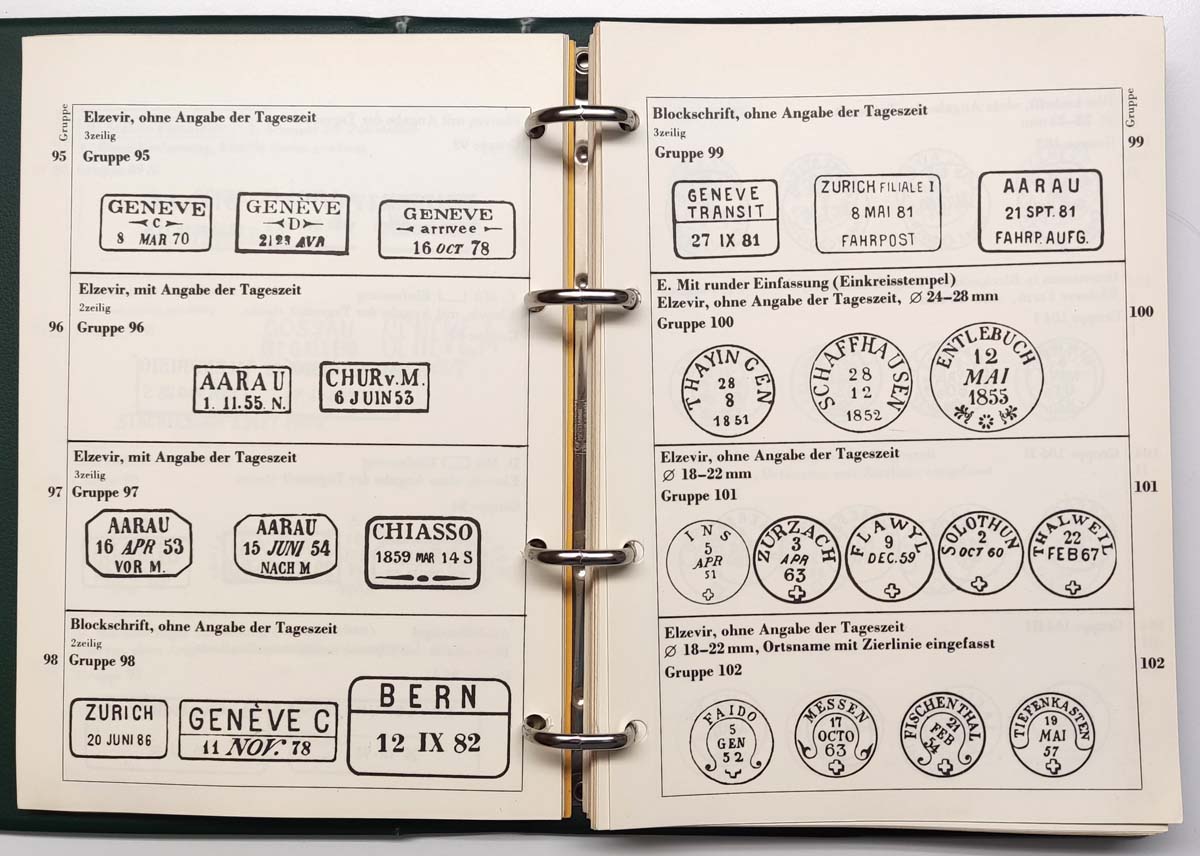 Gruppe
Elzevir, ohne Angabe der Tageszeit
3zeilig
95 Gruppe 95
GENEVE
C
8 MAR 70
GENÈVE
D
AVR
GENEVE
arrivée
16 OCT 78
Elzevir, mit Angabe der Tageszeit
2zeilig
96 Gruppe 96
AARAU
1. 11.55. N.
CHUR v. M.
6 JUIN 53
Elzevir, mit Angabe der Tageszeit
3zeilig
97 Gruppe 97
AARAU
16 APR 53
VOR M.
AARAU
15 JUNI 54
NACH M
CHIASSO
1859 MAR 14 S
Blockschrift, ohne Angabe der Tageszeit
2zeilig
98 Gruppe 98
ZURICH
20 JUNI 86
GENÈVE C
11 NOV. 78
BERN
12 IX 82
Gruppe
Blockschrift, ohne Angabe der Tageszeit
3zeilig
Gruppe 99 99
GENEVE
TRANSIT
27 IX 81
ZURICH FILIALE I
8 MAI 81
FAHRPOST
AARAU
21 SPT. 81
FAHRP. AUFG.
E. Mit runder Einfassung (Einkreisstempel)
Elzevir, ohne Angabe der Tageszeit, ⌀ 24–28 mm
Gruppe 100 100
THAYINGEN
28
8
1851
SCHAFFHAUSEN
28
12
1852
ENTLEBUCH
12
MAI
1855
Elzevir, ohne Angabe der Tageszeit
⌀ 18–22 mm
Gruppe 101 101
INS
5
APR
51
ZURZACH
3
APR
63
FLAWYL
9
DEC. 59
SOLOTHUN
2
OCT 60
THALWEIL
22
FEB 67
Elzevir, ohne Angabe der Tageszeit
⌀ 18–22 mm, Ortsname mit Zierlinie eingefasst
Gruppe 102 102
FAIDO
5
GEN
52
MESSEN
17
OCTO
63
FISCHENTHAL
21
FEB
54
TIEFENKASTEN
19
MAI
57